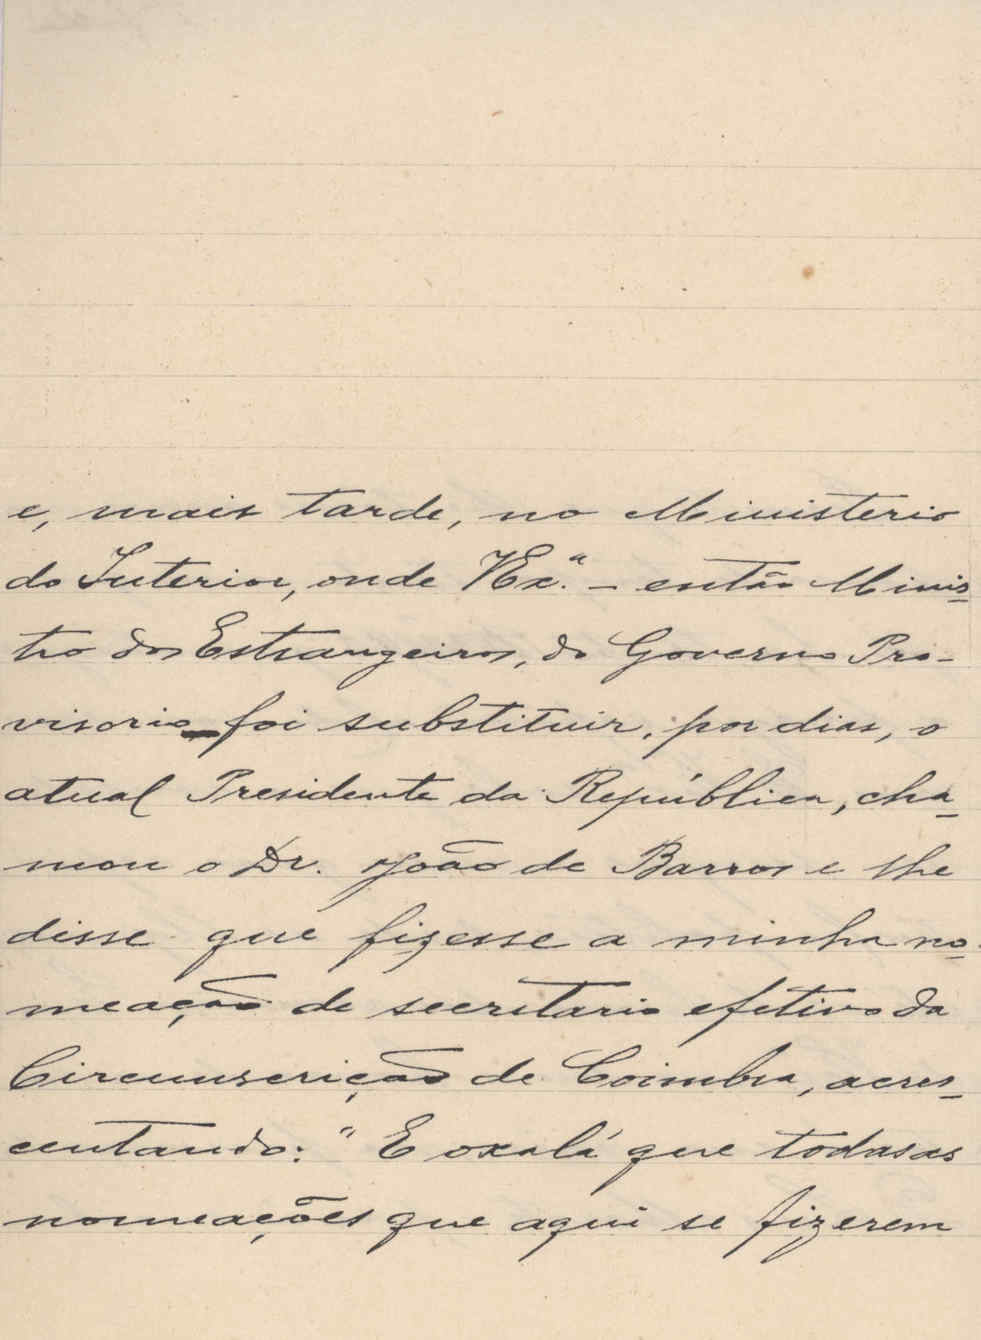 e, mais tarde, no Ministerio
do Interior, onde VEx.ª - então Minis-
tro dos Estrangeiros, do Governo Pro-
visorio - foi substituir, por dias, o
atual Presidente da República, cha-
mou o Dr. João de Barros e lhe
disse que fizesse a minha no-
meação de secretario efetivo da
Circunscrição de Coimbra, acres-
centando: "E oxalá que todas as
nomeações que aqui se fizerem